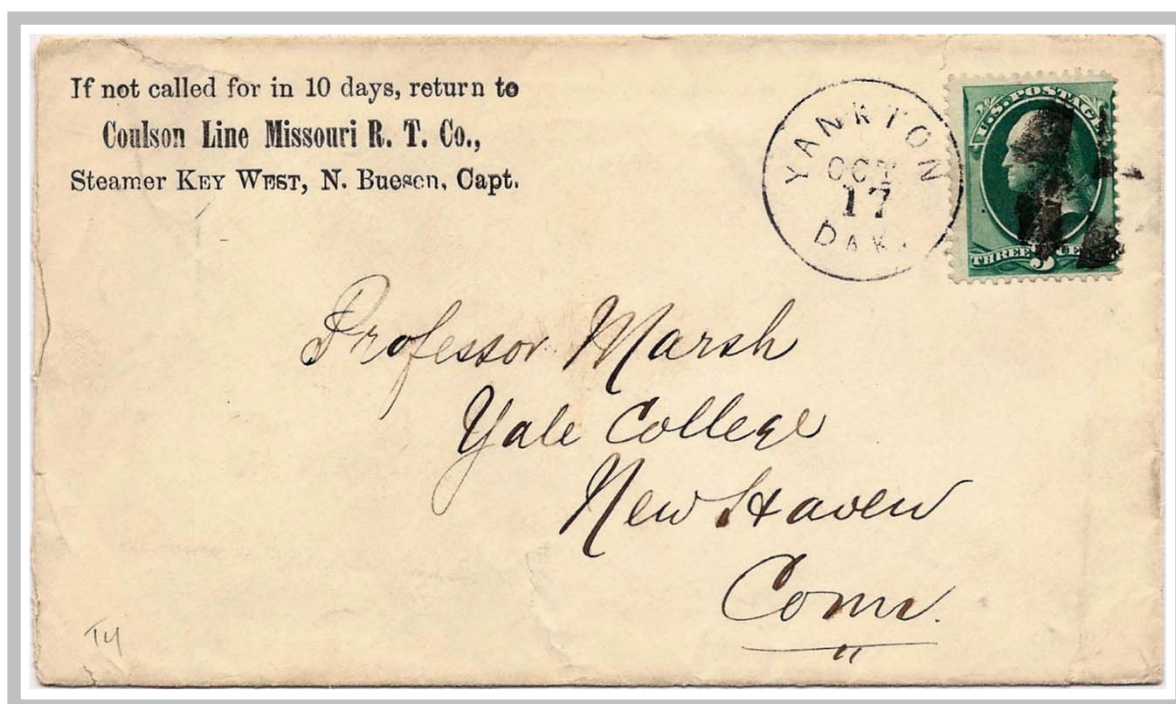 If not called for in 10 days, return to
Coulson Line Missouri R. T. Co.,
Steamer KEY WEST, N. Buesen, Capt.
YANKTON
OCT
17
DAK.
U.S. POSTAGE
THREE 3 CE
Professor Marsh
Yale College
New Haven
Conn.